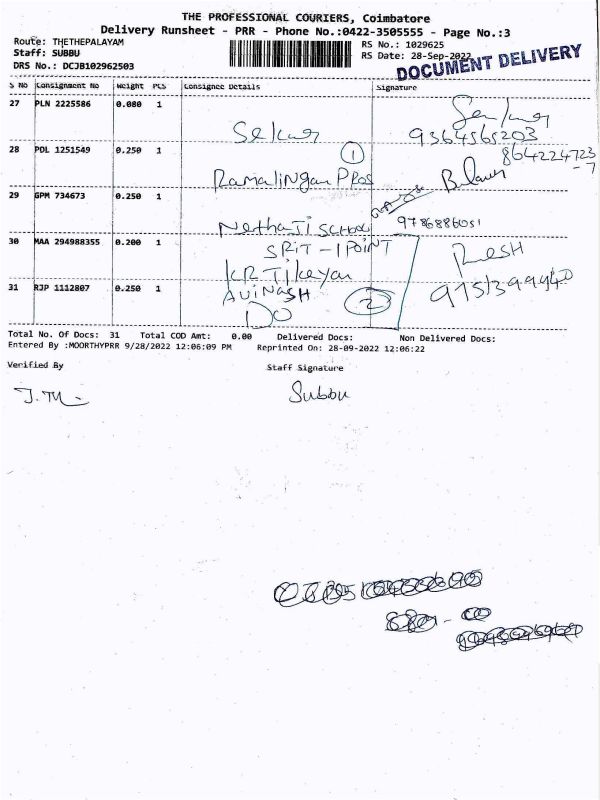 THE PROFESSIONAL COURIERS, Coimbatore
Delivery Runsheet - PRR - Phone No.:0422-3505555 - Page No.:3
Route: THETHEPALAYAM
RS No.: 1029625
Staff: SUBBU
RS Date: 28-Sep-2022
DRS No.: DCJB102962503
DOCUMENT DELIVERY
S No Consignment No Weight PCS Consignee Details Signature
27 PLN 2225586 0.080 1
Sekar
9364565203
28 PDL 1251549 0.250 1
1
864224723
-7
Ramalingam PROS
29 GPM 734673 0.250 1
9786886051
Nethaji SCHOOL
30 MAA 294988355 0.200 1
SPIT - 1 POINT
KR Tikeyan
31 RJP 1112807 0.250 1
AVINASH
2
DO
Total No. Of Docs: 31 Total COD Amt: 0.00 Delivered Docs: Non Delivered Docs:
Entered By :MOORTHYPRR 9/28/2022 12:06:09 PM Reprinted On: 28-09-2022 12:06:22
Verified By Staff Signature
Subbu